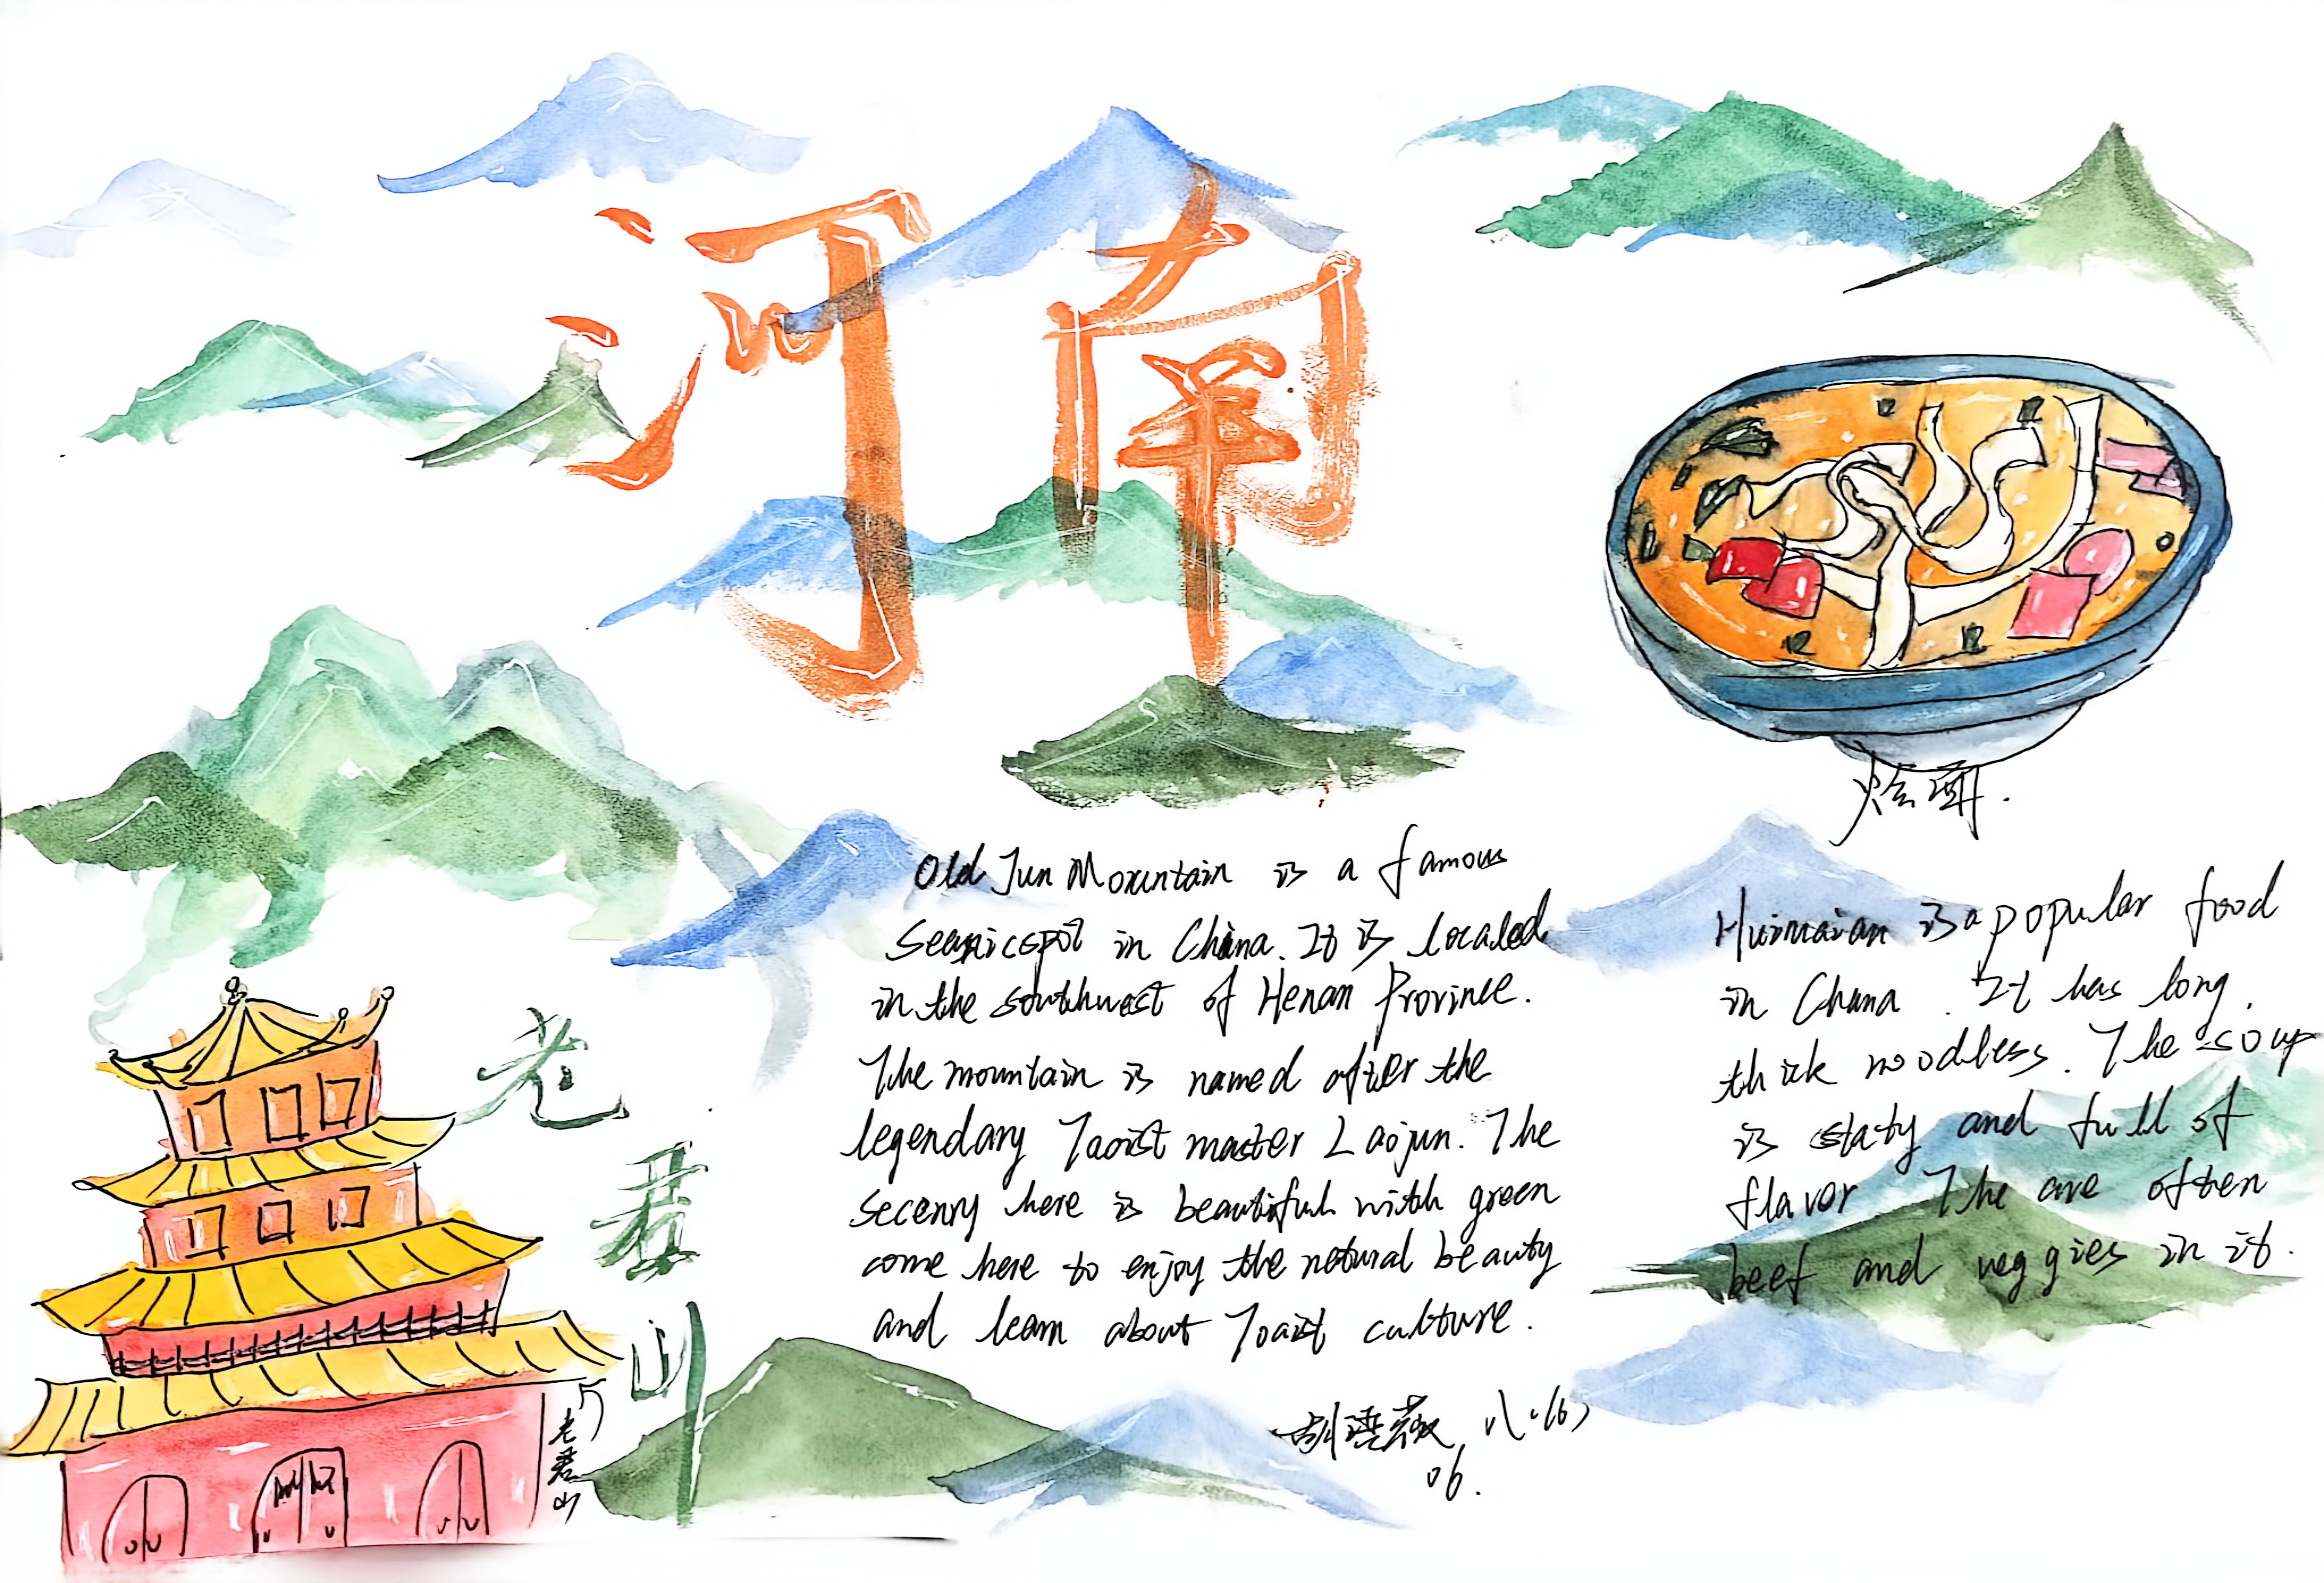 河南
烩面.
Old Jun Mountain is a famous
in China. It is located
in the southwest of Henan Province.
The mountain is named after the
legendary Taoist master Laojun. The
secenry here is beautiful with green
come here to enjoy the natural beauty
and learn about Toaist culture.
is a popular food
in China. It has long,
thick noodless. The soup
is and full of
flavor The are often
beef and veggies in it.
老君山
老君山
06.